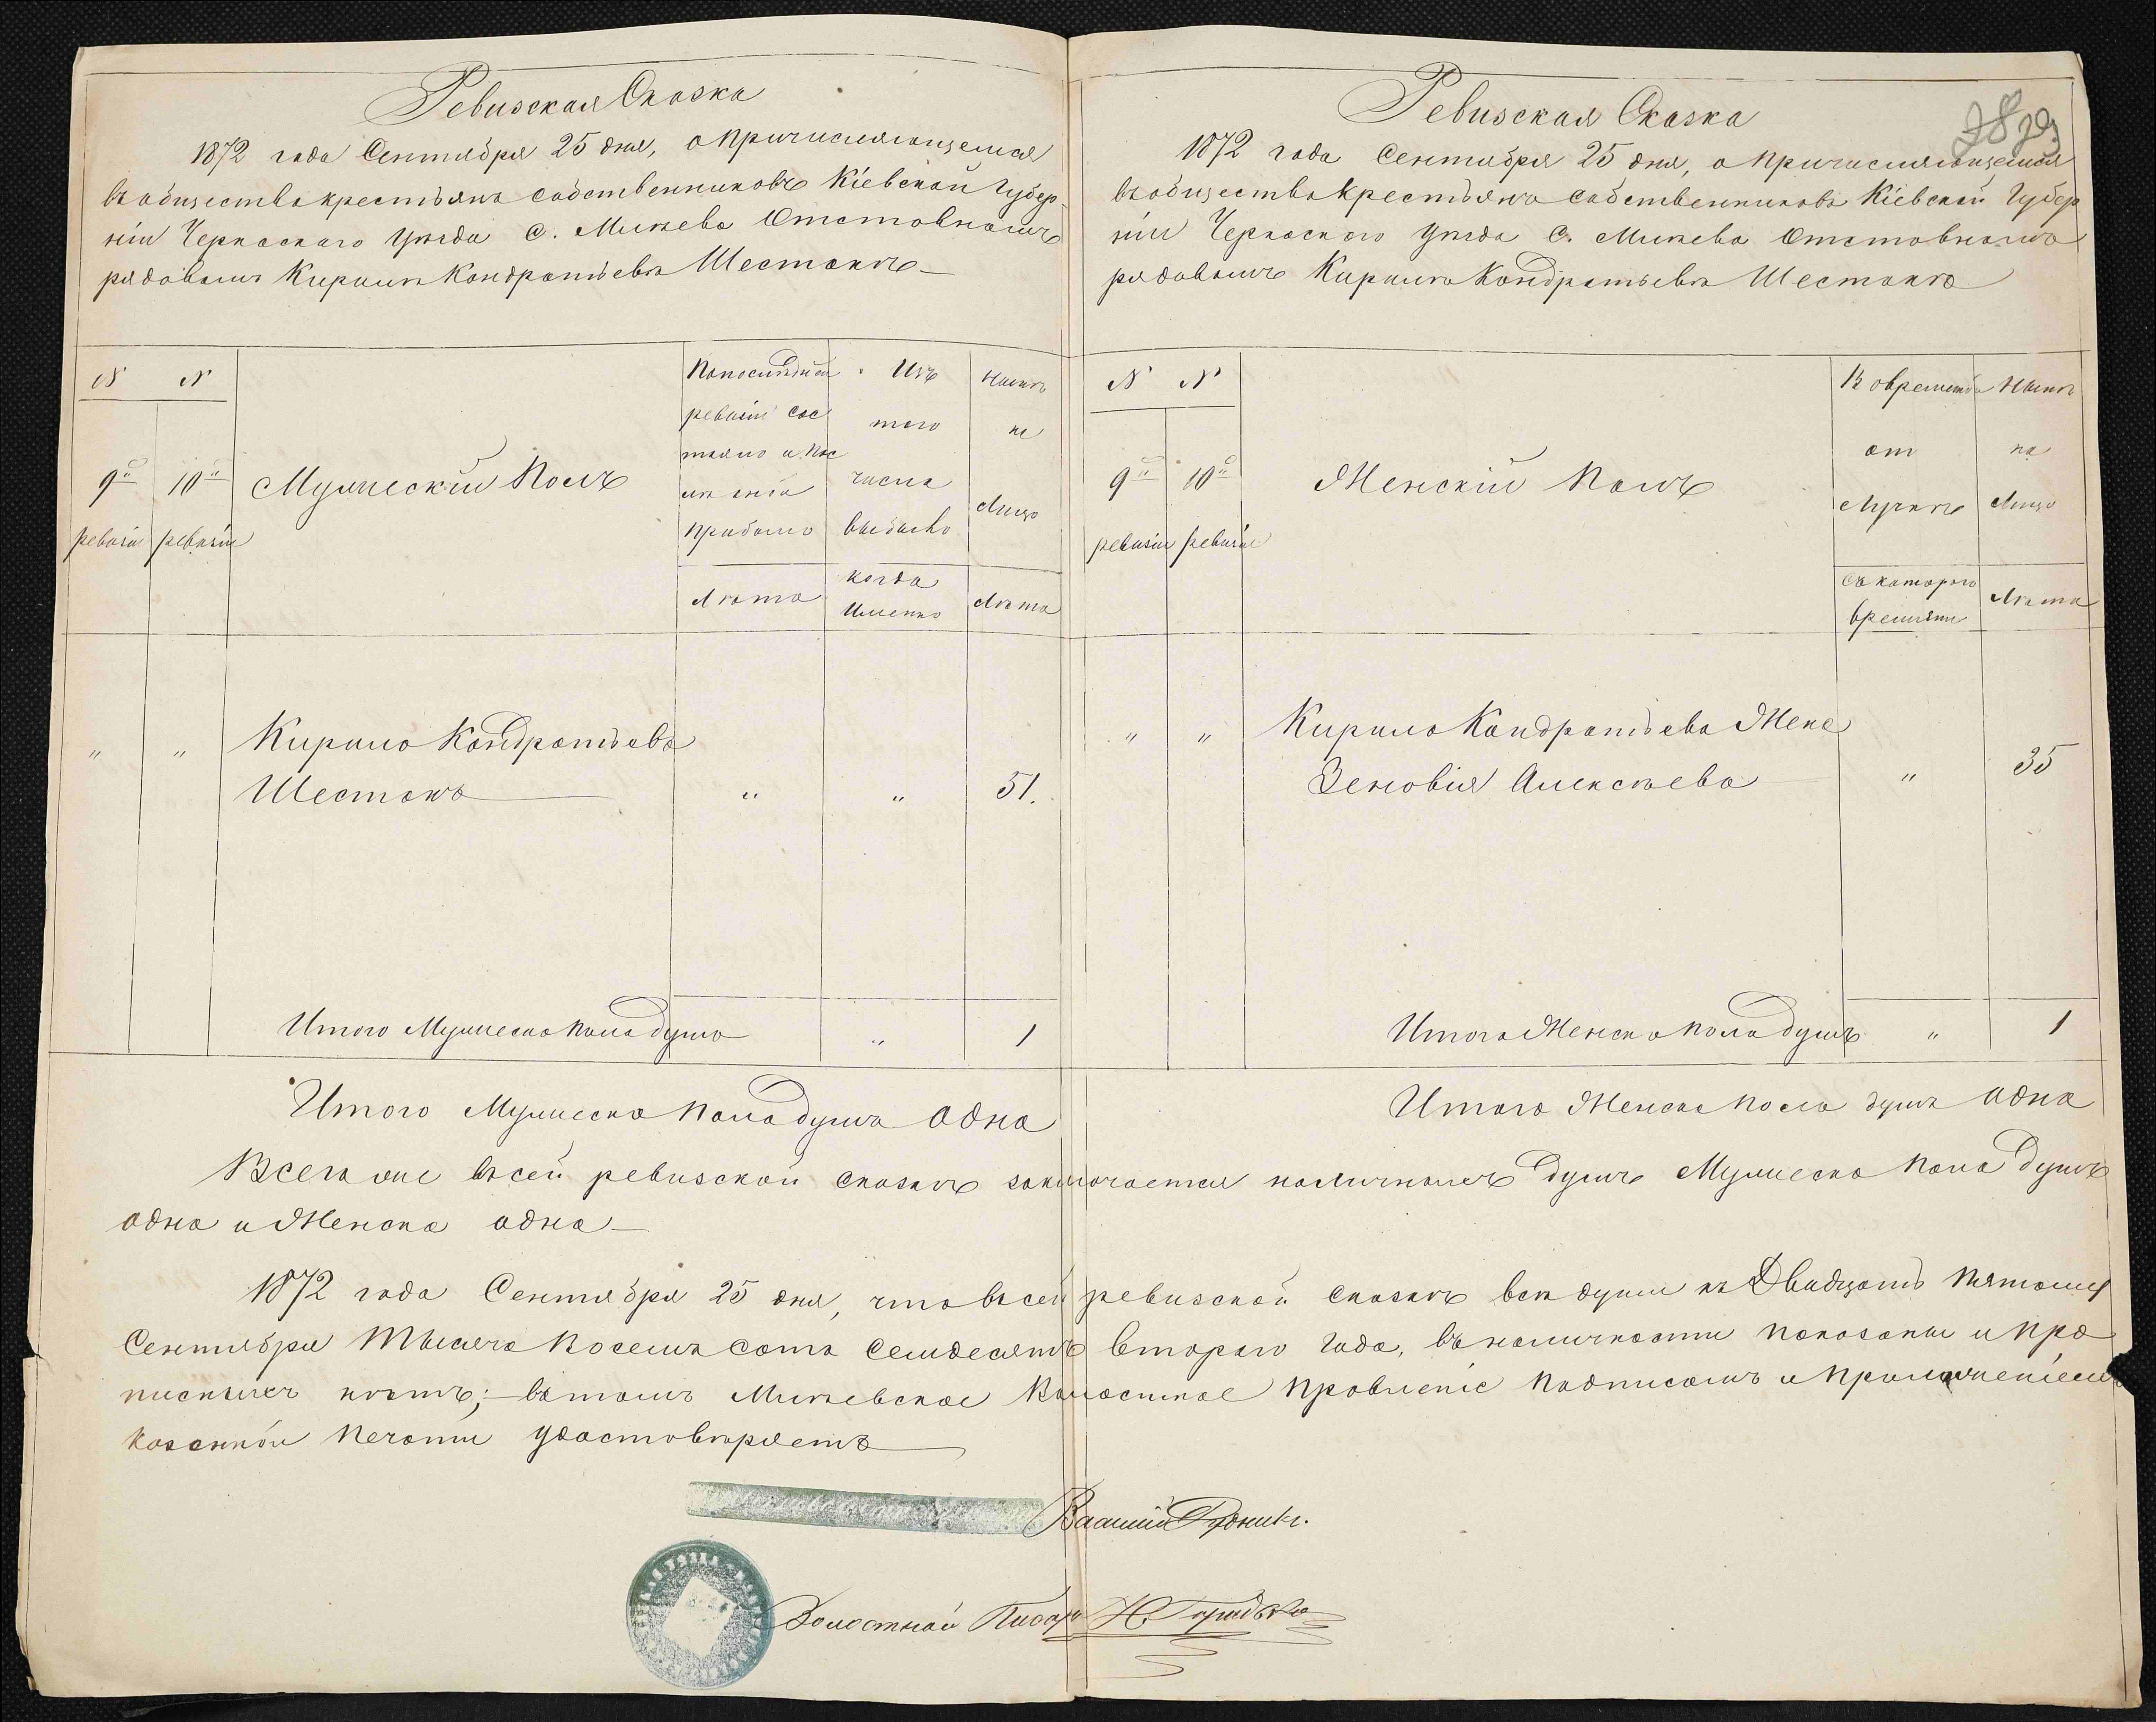 Ревизская Сказка
1872 года Сентября 25 дня, о причисляющемся
въ общество крестьянъ собственниковъ Кіевской Губер-
ніи Черкаскаго Уѣзда С. Мліева Отставномъ
рядовомъ Кирилѣ Кондратьевѣ Шестакѣ
N N
9й 10й
ревизіи ревизіи
Мужескій Полъ
По последней
ревизіи сос
тояло и пос
лѣ оной
прибыло
Лѣта
Изъ
того
числа
выбыло
когда
Именно
Нынѣ
на
Лицо
Лѣта
" " Кирило Кондратьевъ
Шестакъ " " 51.
Итого Мужеска пола душъ " 1
Итого Мужеска пола душъ одна
Ревизская Сказка
1872 года Сентября 25 дня, о причисляющемся
въ общество крестьянъ собственниковъ Кіевской Губер
ніи Черкаского Уѣзда С. Мліева Отставномъ
рядовомъ Кирилѣ Кондратьевѣ Шестакѣ
N N
9й 10й
ревизіи ревизіи
Женскій Полъ
Во временной
от
лучкѣ
Съ котораго
времяни
Нынѣ
на
Лицо
Лѣта
" " Кирила Кондратьева Жена
Зеновія Алексѣева " 35
Итого Женска пола душъ " 1
Итого Женска пола душъ одна
Всего же въ сей ревизской сказкѣ заключается наличныхъ душъ Мужеска пола душъ
одна и Женска одна
1872 года Сентября 25 дня, что въ сей ревизской сказкѣ всѣ души къ Двадцать пятому
Сентября Тысяча восемь сотъ семдесятъ втораго года, въ наличности показаны и про
писныхъ нѣтъ; въ томъ Мліевское Волостное Правленіе подписомъ и приложеніемъ
казенной печати удостовѣряетъ
Волостной Писарь